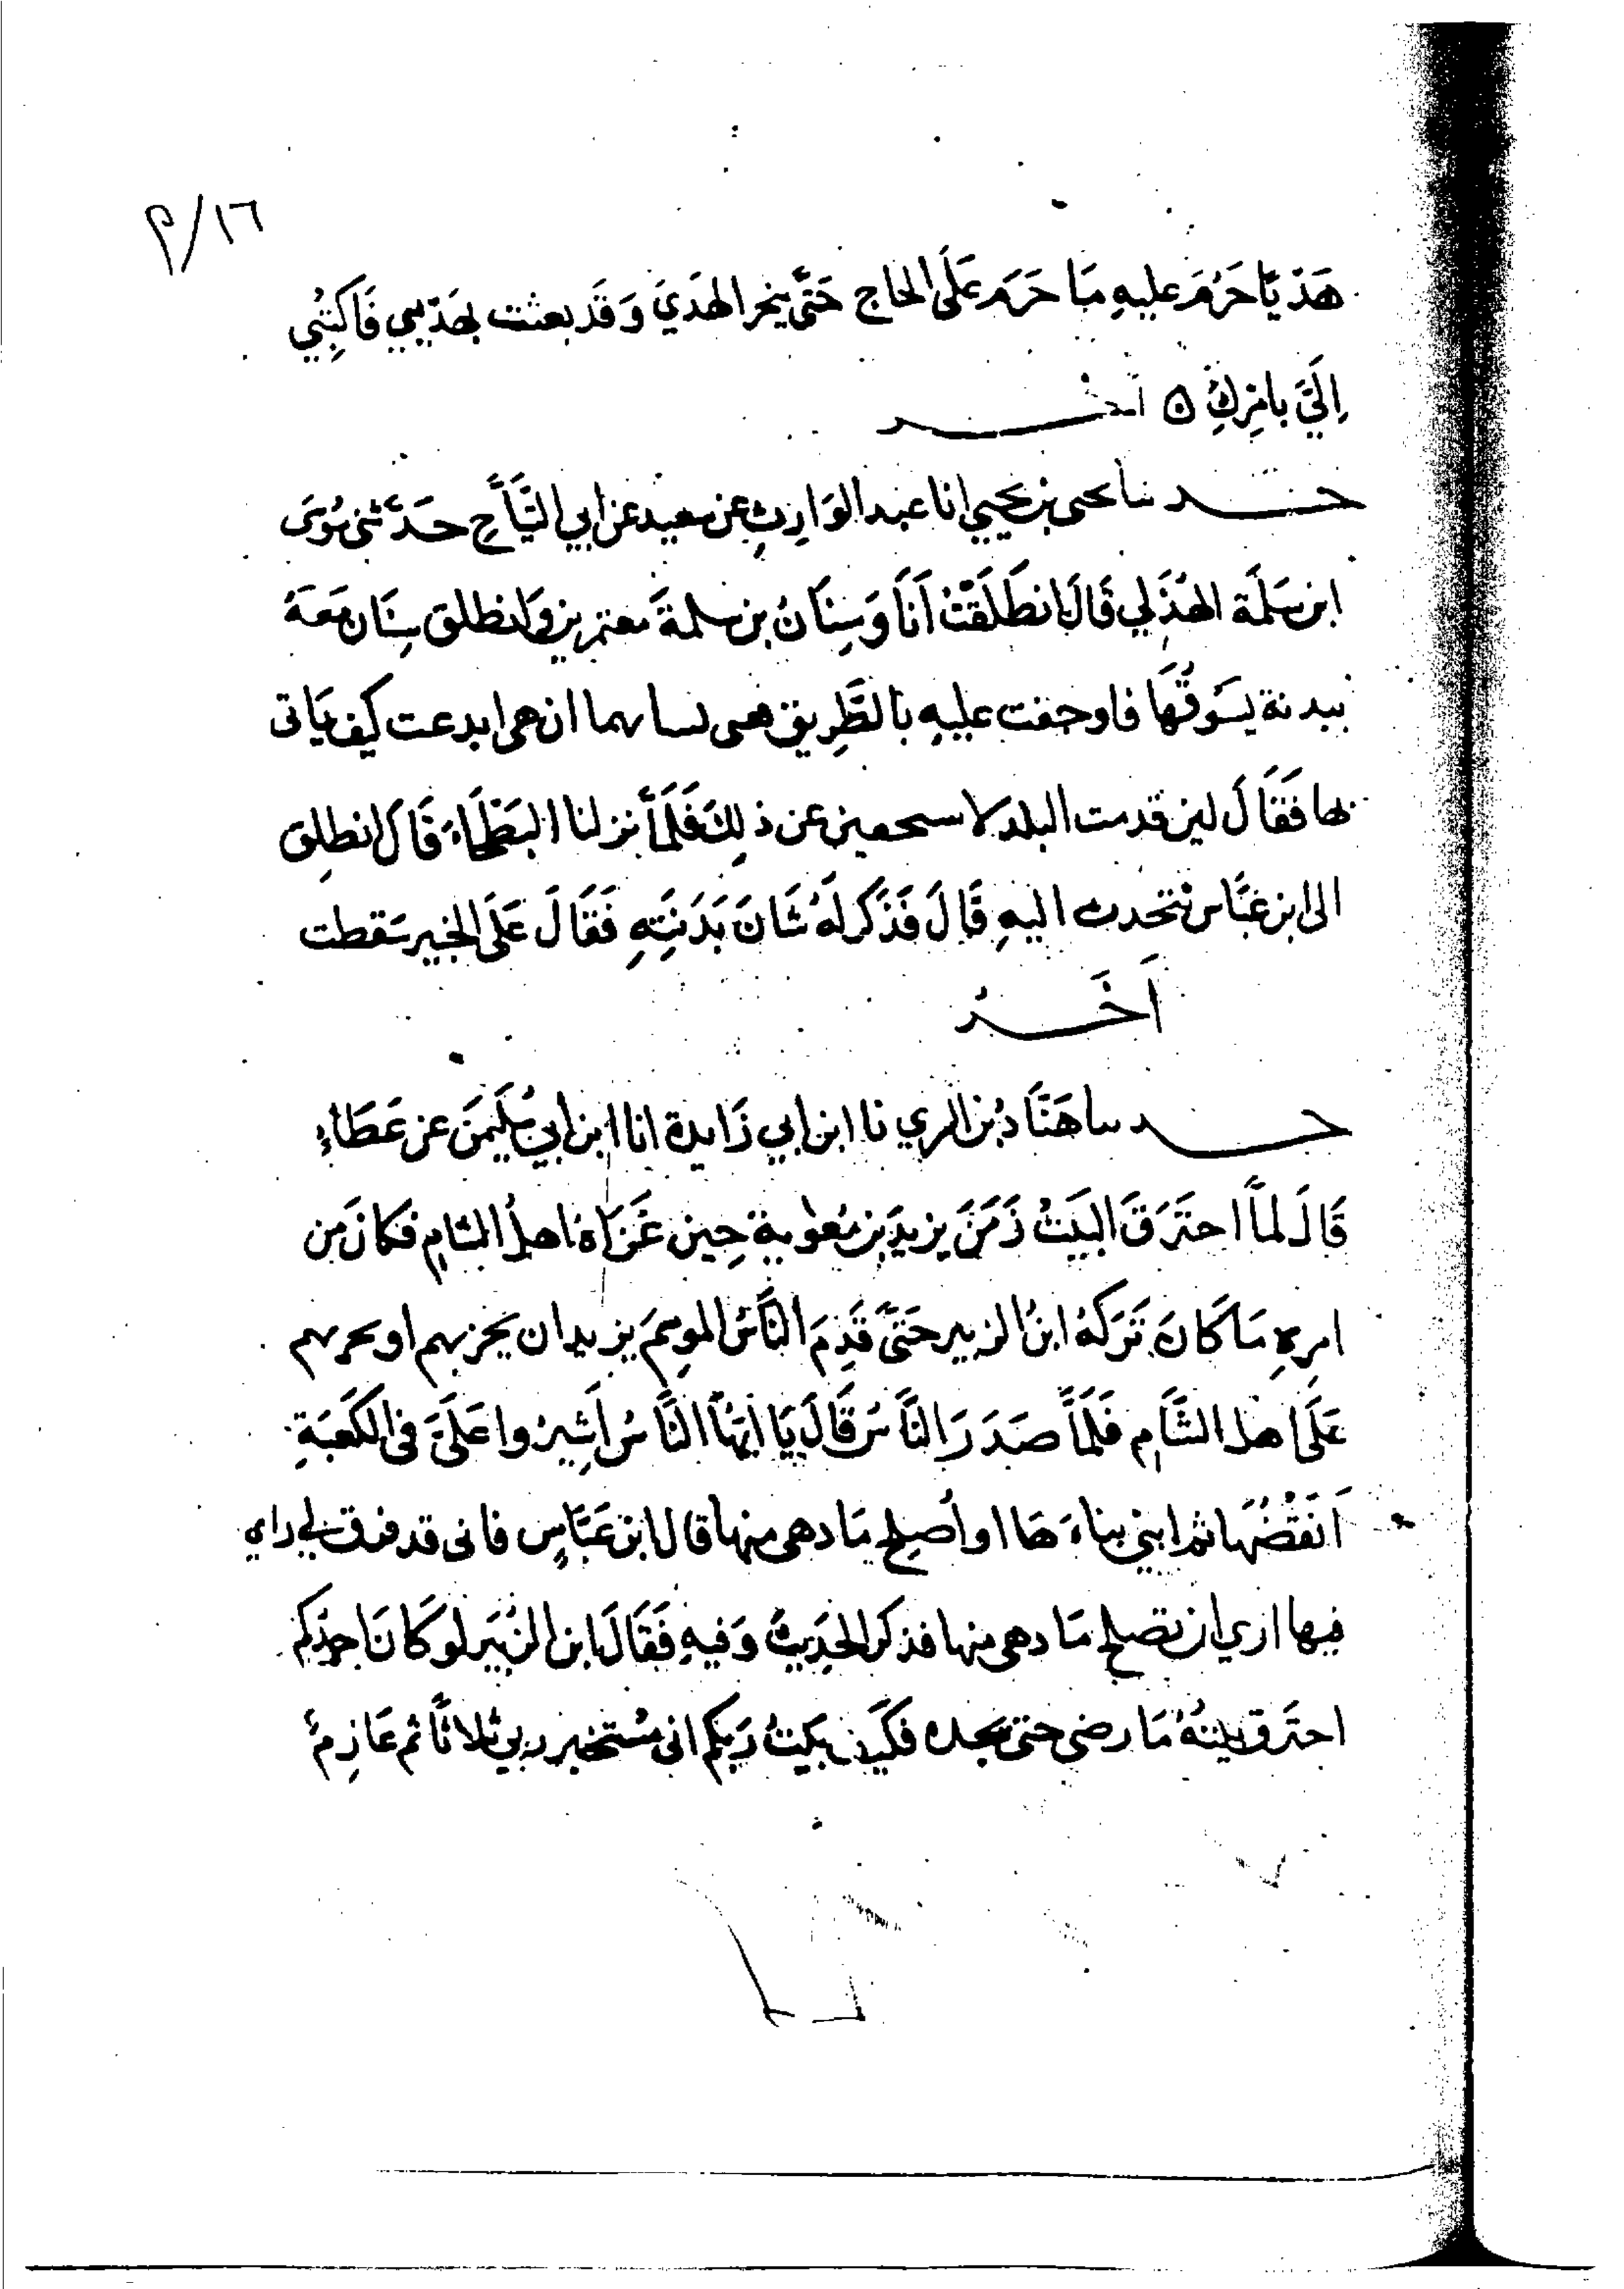 ١٦/م
هَدْيًا حَرُمَ عليهِ مَا حَرَم عَلَى الحَاج حَتَّى ينحر الهَديَ وَقَد بعثت بهَدْيي فَاكتُبي
اِلَيَّ بامْرِكِ ه اَخــر
حــد ثنا يحيى بن يحيي انا عَبد الوَارِثِ عن سعيد عن ابي التَّيَّاحِ حَدَّثنى مُوسَى
ابن سَلَمَة الهُذَلي قَالَ انطَلَقْتُ اَنَا وَسِنَانُ بن سلمةَ معتمرين وانطلق سِنَان مَعَهُ
ببدنة يَسُوقُهَا فاوحفت عليهِ بالطَّرِيق فعى لسانهما ان هى ابدعت كيف يَاتى
بها فَقَالَ لين قدمت البلد لاستحفين عن ذلِكَ فَلَمَّا نزلنا البَطْحَاءَ قَالَ انطلِق
الى ابن عَبَّاس نتحدث اليهِ قَالَ فَذَكر لَهُ شَانَ بَدَنَتِهِ فَقَالَ عَلَى الخبير سَقطت
اَخَــرُ
حــد ثنا هَنَّادُ بن السري نا ابن ابي زَايدة انا ابن ابي سُلَيمَنَ عن عَطَاءٍ
قَالَ لمَّا احتَرَقَ البَيتُ زَمَنَ يزيدَ بن مُعٰوية حِين غَزَاهَا اهلُ الشامِ فكان مَن
امرِهِ مَا كَانَ تَرَكَهُ ابنُ الزبير حَتَّى قَدِمَ النَّاسُ المَوسِمَ يريد ان يحزبهم او يحربهم
عَلَى اهل الشَّامِ فَلَمَّا صَدَرَ النَّاسُ قَالَ يَا ايُّهَا النَّاسُ اَشِيرُوا عَلَيَّ فى الكَعبَةِ
اَنقُضُهَا ثم ابني بناءَهَا او اُصلِح مَا وهى منها قال ابن عَبَّاسٍ فانى قد فرق لي راي
فيها ارى ان تصلح مَا وهى منها فذكر الحَدِيثَ وَفيهِ فَقَالَ ابن الزُّبَيرِ لو كَانَ احدكم
احتَرق بيتهُ مَا رضى حتى يجده فكَيف بَيتُ رَبكم انى مُستَخير ربى ثلاثًا ثم عَازِمٌ